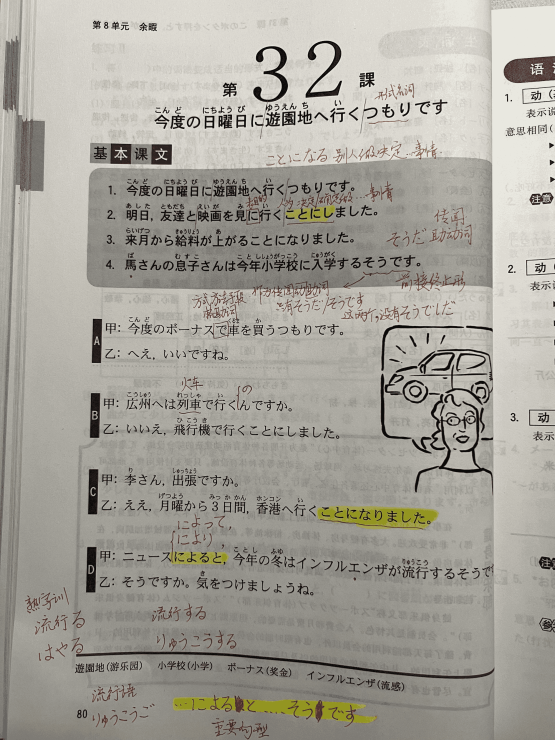 第8单元 余暇
第32課
今度の日曜日に遊園地へ行くつもりです
形式名词
基本课文
ことになる 别人做决定…事情
1. 今度の日曜日に遊園地へ行くつもりです。
2. 明日，友達と映画を見に行くことにしました。
3. 来月から給料が上がることになりました。
4. 馬さんの息子さんは今年小学校に入学するそうです。
传闻
そうだ 助动词
前接终止形
只有そうだ/そうです
这两个，没有そうでしだ
A
甲：今度のボーナスで車を買うつもりです。
乙：へえ，いいですね。
火车
の
B
甲：広州へは列車で行くんですか。
乙：いいえ，飛行機で行くことにしました。
C
甲：李さん，出張ですか。
乙：ええ，月曜から3日間，香港へ行くことになりました。
によって，
により
D
甲：ニュースによると，今年の冬はインフルエンザが流行するそうで
乙：そうですか。気をつけましょうね。
熟字训
流行る
はやる
流行する
りゅうこうする
遊園地(游乐园) 小学校(小学) ボーナス(奖金) インフルエンザ(流感)
流行語
りゅうこうご
80
…によると……そうです
重要句型
语
1. 动(基
表示说
意思相同(
注意
2. 动
表示
3. 动
表示
注
参